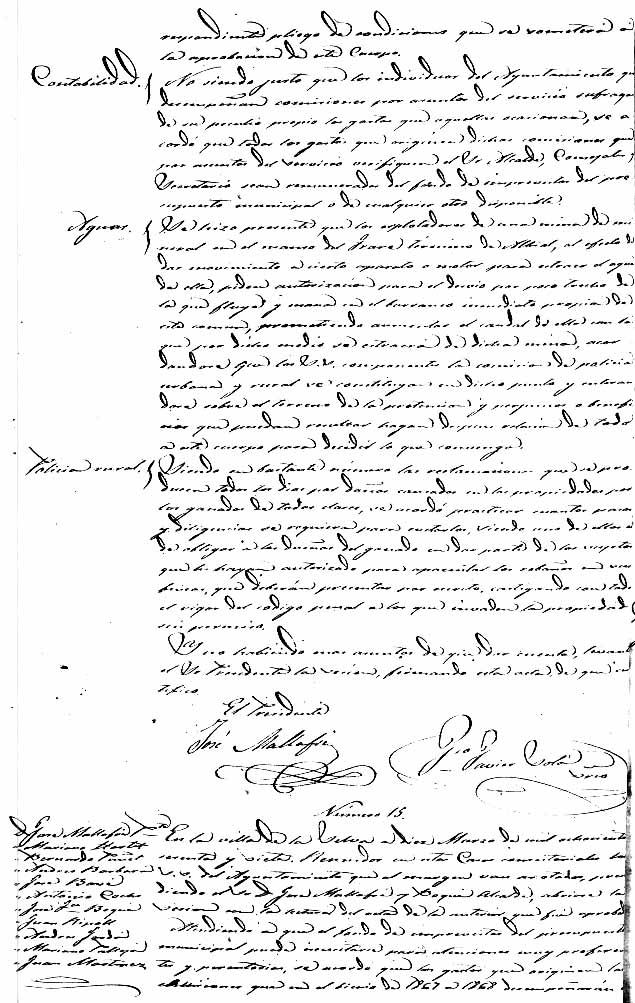 respondiente pliego de condiciones que se someterá á
la aprobacion de este Cuerpo.
Contabilidad. No siendo justo que los individuos del Ayuntamiento q
desempeñan comisiones por asuntos del servicio sufraguen
de su peculio propio los gastos que aquellas ocasionan, se a
cordó que todos los gastos que originen dichas comisiones que
por asuntos del servicio verifiquen el Sr. Alcalde, Concejales,
Secretario sean remunerados del fondo de imprevistos del pre
supuesto municipal o de cualquier otro disponible.
Aguas. Se hizo presente que los explotadores de una mina de mi
neral en el término de Alb
dar movimiento a cierto aparato o motor para estraer el agua
de ella, piden autorizacion para el desvio por poco trecho de
la que fluye y mana en el barranco inmediato propia de
este comun, prometiendo aumentar el caudal de ella con la
que por dicho medio se estraerá de dicha mina, acor
dandose que los S.S. componentes la comision de policia
urbana y rural se constituyan en dicho punto y enteran
dose sobre el terreno de la pretension y perjuicios o benefi
cios que puedan resultar hagan relacion de todo
a este cuerpo para decidir lo que convenga.
Policia rural. Siendo en bastante número las reclamaciones que se pro
ducen todos los dias por daños causados en las propiedades por
los ganados de todas clases, se acordó practicar cuantos pasos
y diligencias se requiera para evitarlos, siendo uno de ellos el
de obligar a los dueños del ganado en dar parte de los sugetos
que les hayan autorizado para apacentar los rebaños en sus
fincas, que deberán presentar por escrito, castigando con todo
el rigor del código penal a los que invadan la propiedad
sin permiso.
Y no habiendo mas asuntos de que dar cuenta, levantó
el Sr Presidente la sesion, firmando esta acta de que cer
tifico.
El Presidente
José Mallafré
Javier Solé
Srio
Número 15.
D. José Mallafré
Mariano
Bernardo
Andres Barbará
José
Antonio
José
Juan
Andres
Mariano
Juan Martinez
En la villa de la Selva a diez Marzo de mil ochocientos
sesenta y siete. Reunidos en esta Casa consistorial los
S.S. del Ayuntamiento que al margen van anotados, presi
diendo el Sr D José Mallafré y Alcalde, abierta la
sesion con la lectura del acta de la anterior que fué aprob
Atendiendo a que el fondo de imprevistos del presupuesto
municipal puede necesitarse para atenciones muy prefere
tes y perentorias, se acordó que los gastos que originen la
comisiones que en el bienio de 1867 a 1868 desempeñarán